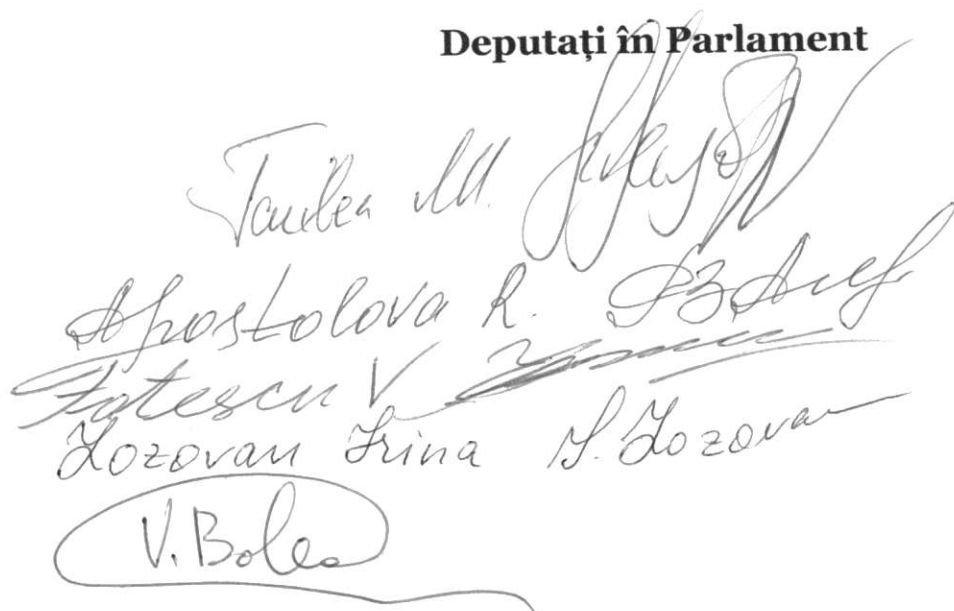 Deputați în Parlament
Tauber M.
Apostolova R.
Fotescu V
Lozovan Irina I. Lozovan
V. Bolea